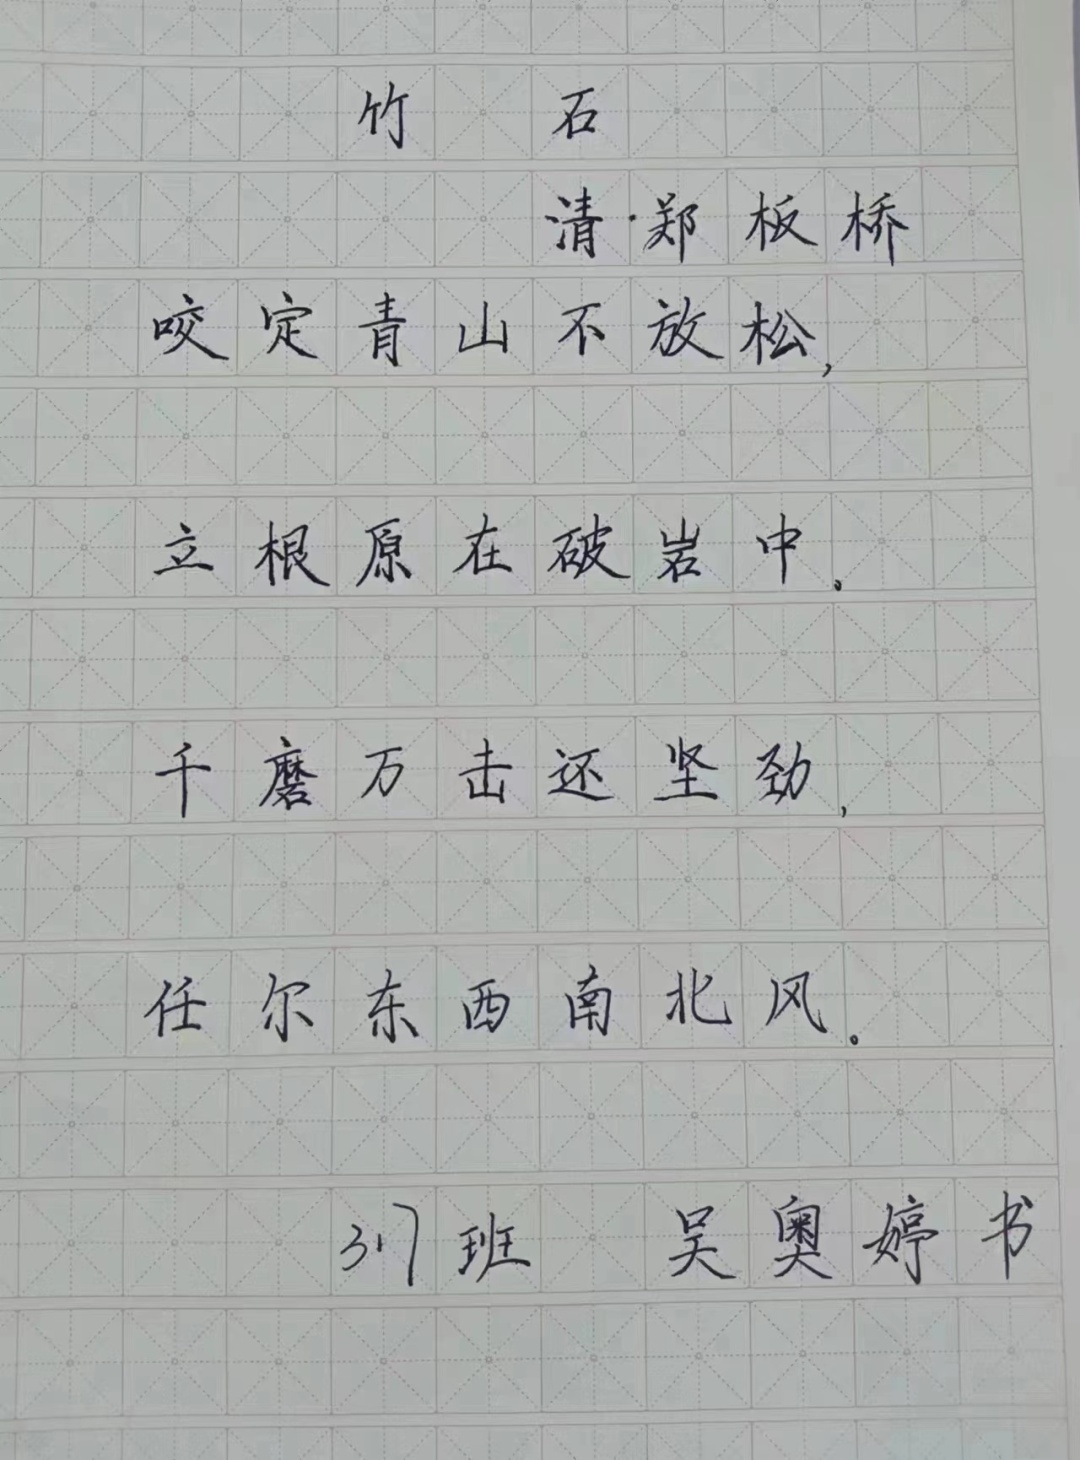 竹 石
清·郑板桥
咬定青山不放松,
立根原在破岩中。
千磨万击还坚劲,
任尔东西南北风。
317班 吴奥婷书